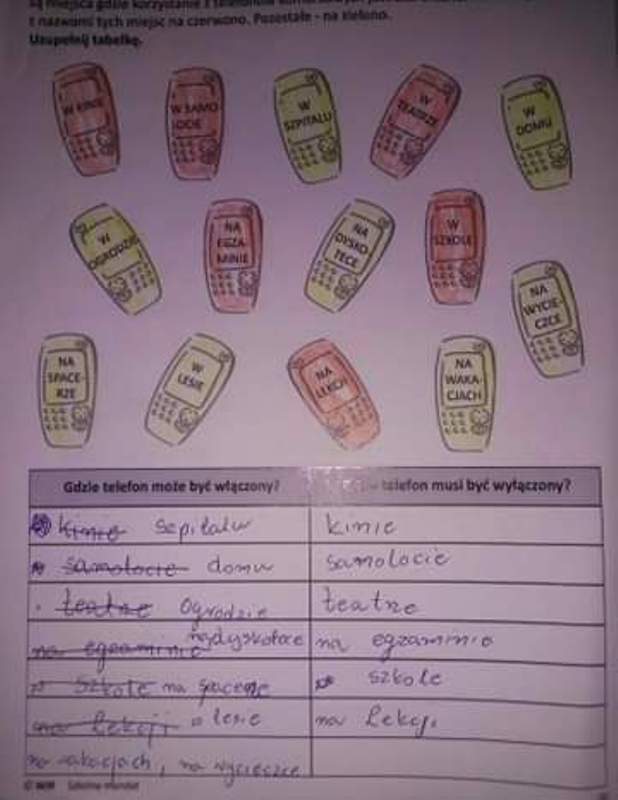 są miejsca gdzie korzystanie z telefonów
z nazwami tych miejsc na czerwono. Pozostałe - na zielono.
Uzupełnij tabelkę.
W KINIE
W SAMO
LOCIE
W
SZPITALU
W
TEATRZE
W
DOMU
W
OGRODZIE
NA
EGZA-
MINIE
NA
DYSKO-
TECE
W
SZKOLE
NA
WYCIE-
CZCE
NA
SPACE-
RZE
W
LESIE
NA
LEKCJI
NA
WAKA-
CJACH
Gdzie telefon może być włączony?
telefon musi być wyłączony?
kinie szpitalu
kinie
samolocie domu
samolocie
teatrze ogrodzie
teatrze
na egzaminie na dyskotece
na egzaminie
szkole na spacerze
szkole
na lekcji lesie
na lekcji
na wakacjach, na wycieczce